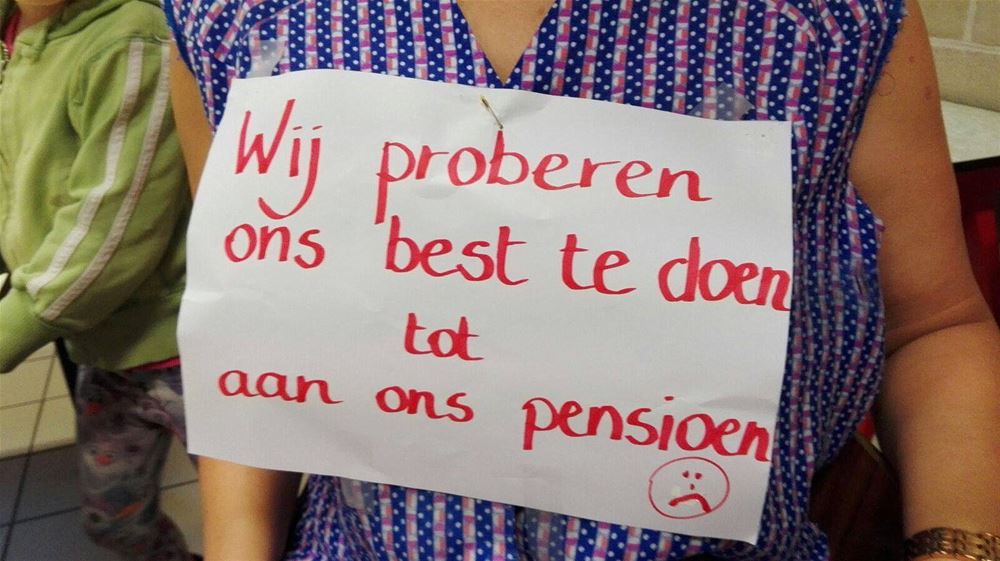 Wij proberen
ons best te doen
tot
aan ons pensioen